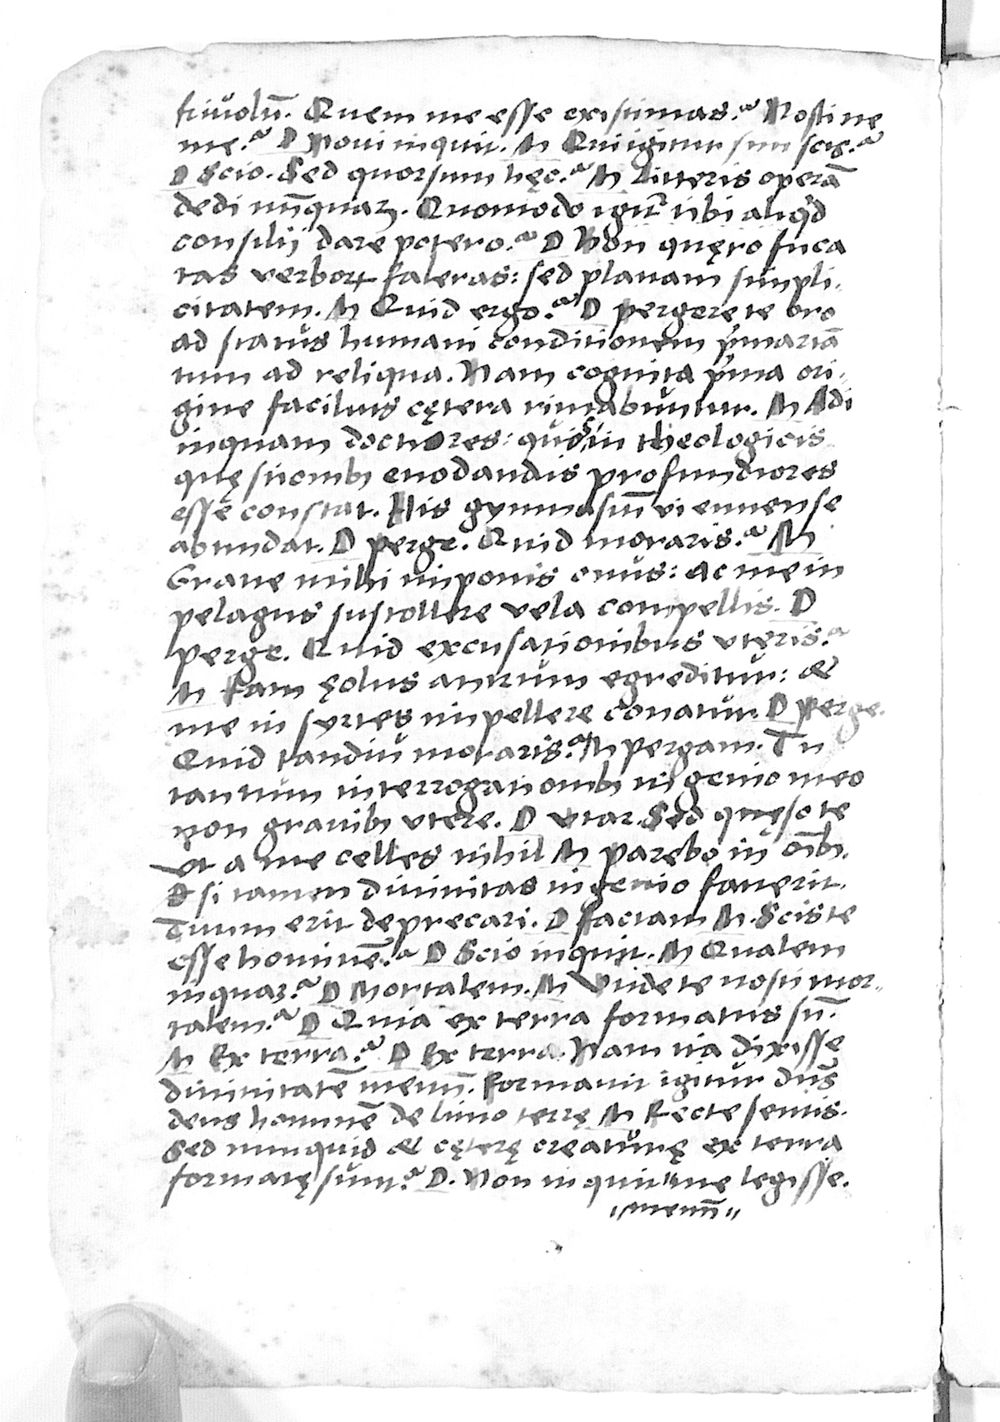 friuolū. Quem me esse existimas? Nostine
me? D Noui inquit. M Qui igitur sim scis?
D Scio. Sed quorsum hęc? M Litteris operā
dedi nūquaꝫ. Quomodo igit᷑ tibi aliqd̕
consilij dare potero? D Non quęro fuca
tas verboꝝ faleras: sed planam simpli-
citatem. M Quid ergo? D pergere te oro
ad status humani conditionem primariā
tum ad reliqua. Nam cognita prima ori-
gine facilius cętera rimabuntur. M Adi
inquam doctiores: quos in theologicis
quęstionibꝫ enodandis profundiores
esse constat. His gymnasiū viennense
abundat. D perge. Quid moraris? M
Graue mihi imponis onus: ac me in
pelagus sustollere vela compellis. D
perge. Quid excusationibus vteris?
M Iam ęolus antrum egreditur: &
me in syrtes impellere conatur. D Perge.
Quid tandiu moraris? M pergam. Tu
tantum interrogationibꝫ ingenio meo
non grauibꝫ vtere. D vtar. Sed quęso te
vt a me celles nihil M parebo in oībꝫ.
Si tamen diuinitas ingenio fauerit.
Tuum erit deprecari. D factam M. Scis te
esse hominē? D Scio inquit. M Qualem
inquaꝫ? D Mortalem. M Vnde te nosti mor-
talem? D Quia ex terra formatus sū.
M Ex terra? D Ex terra. Nam ita dixisse
diuinitatē memī. formauit igitur dn̄s
deus hominē de limo terrę M Recte sentis.
Sed numquid & cęterę creaturę ex terra
formatę sunt? D. Non inquit me legisse.
memī